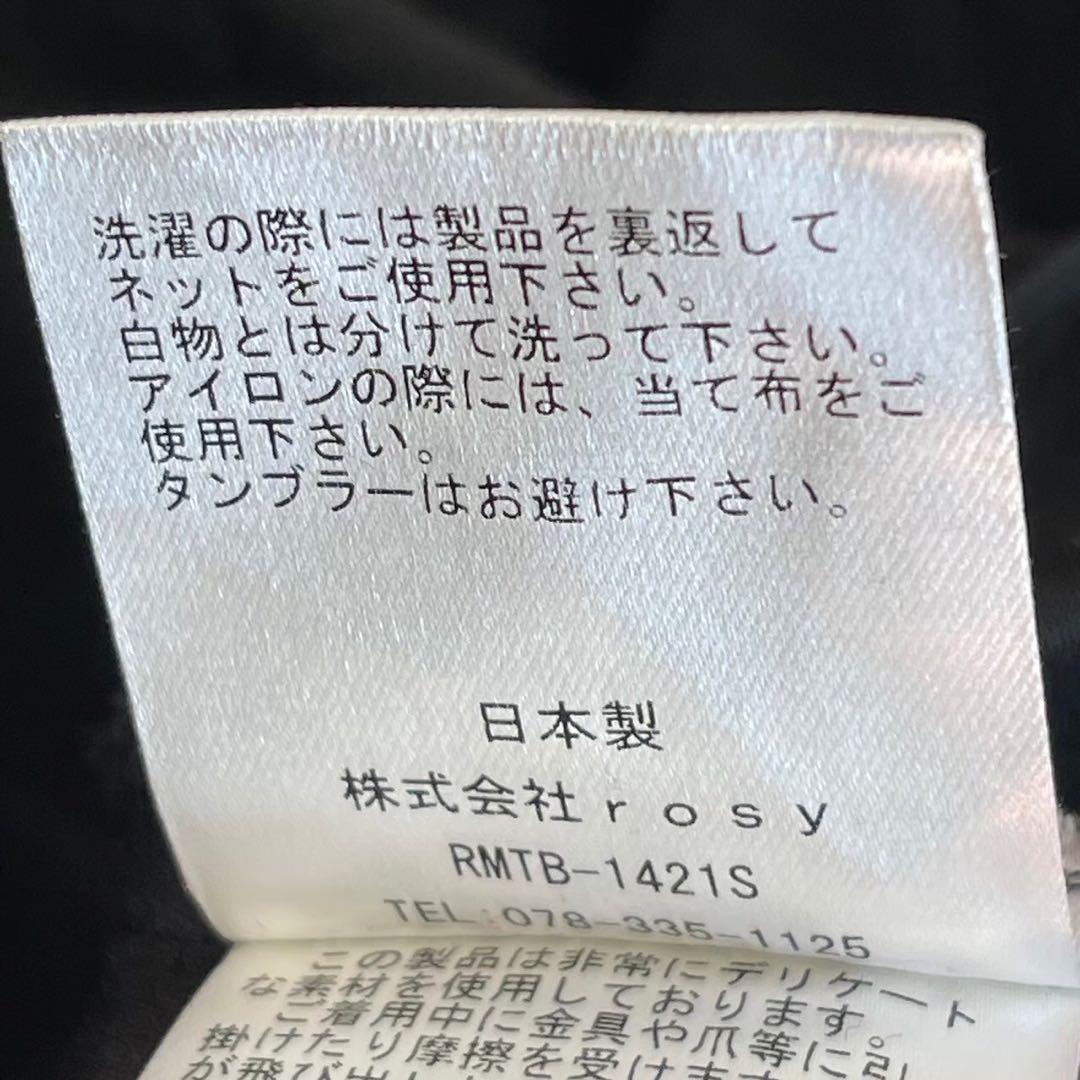 洗濯の際には製品を裏返して
ネットをご使用下さい。
白物とは分けて洗って下さい。
アイロンの際には、当て布をご
使用下さい。
タンブラーはお避け下さい。
日本製
株式会社ｒｏｓｙ
RMTB-1421S
TEL:078-335-1125
この製品は非常にデリケート
な素材を使用しております。
ご着用中に金具や爪等に引
掛けたり摩擦を受けます
が飛び出し